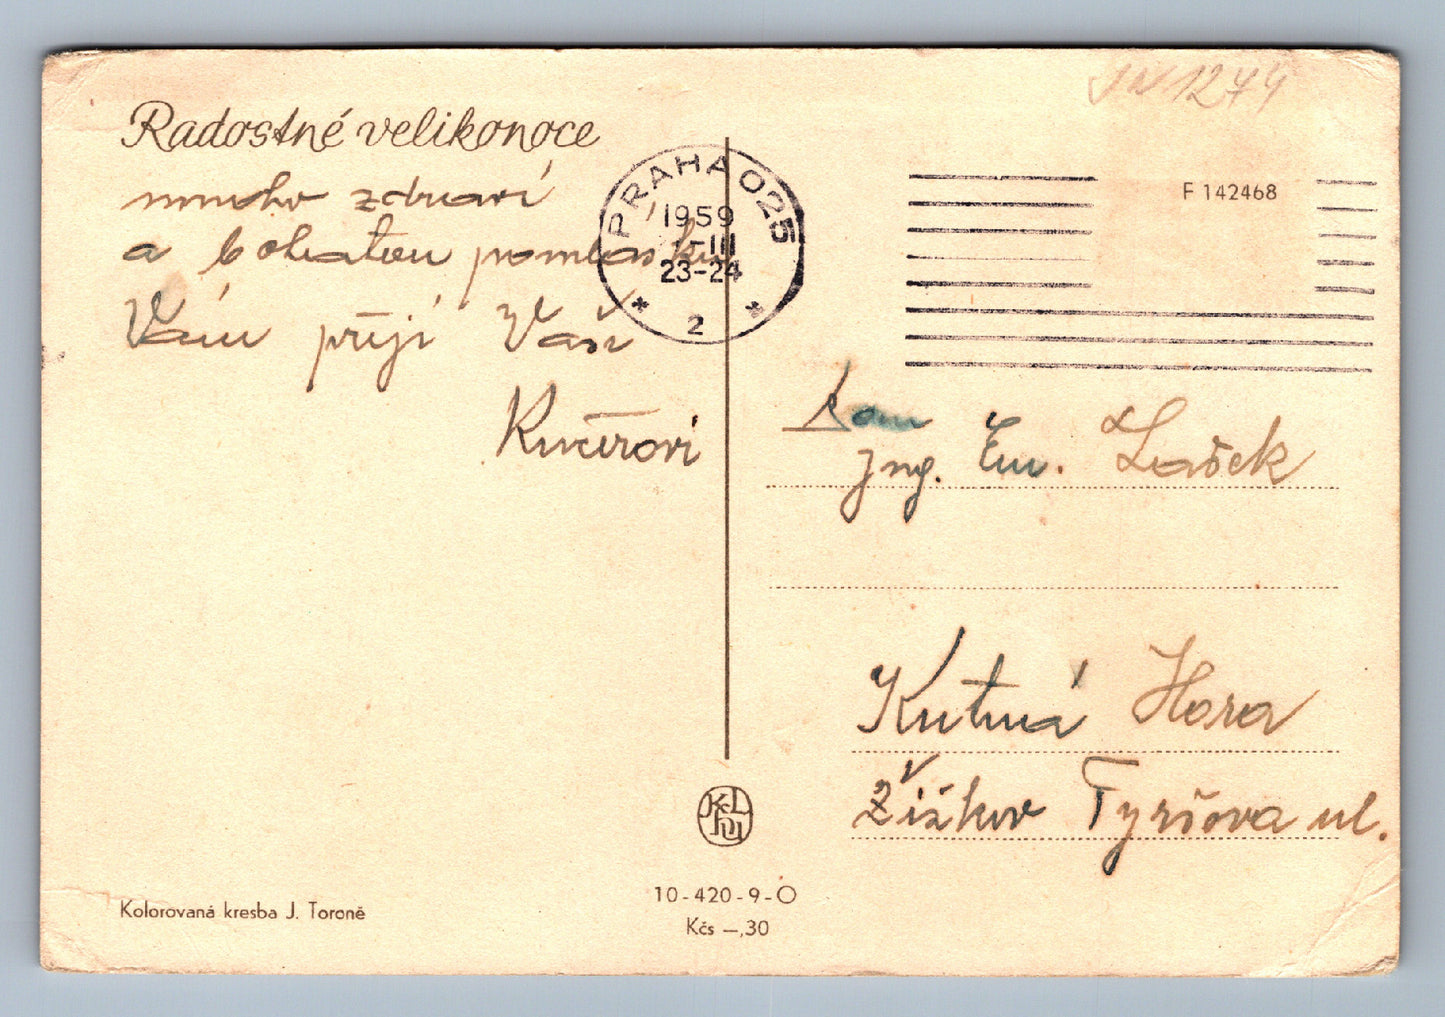 Radostné velikonoce
mnoho zdraví
a bohatou pomlásku
Vám přejí Vaši
Kučerovi
PRAHA 025
1959
III
23-24
* 2 *
1274
F 142468
Pan
Jng. Em. Lašek
Kutná Hora
Žižkov Tyršova ul.
10-420-9-O
Kčs —,30
Kolorovaná kresba J. Toroně